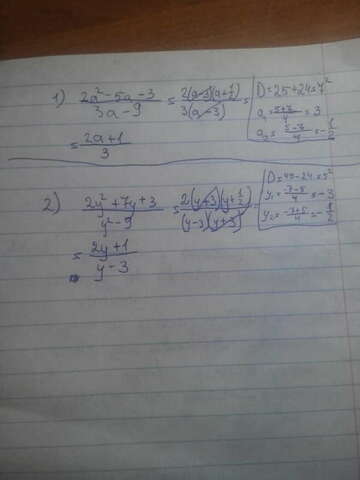 1) (2a² - 5a - 3)/(3a - 9) = (2(a-3)(a+1/2))/(3(a-3)) =
D = 25 + 24 = 7²
a₁ = (5+7)/4 = 3
a₂ = (5-7)/4 = -1/2
= (2a+1)/3
2) (2y² + 7y + 3)/(y² - 9) = (2(y+3)(y+1/2))/((y-3)(y+3)) =
D = 49 - 24 = 5²
y₁ = (-7-5)/4 = -3
y₂ = (-7+5)/4 = -1/2
= (2y+1)/(y-3)